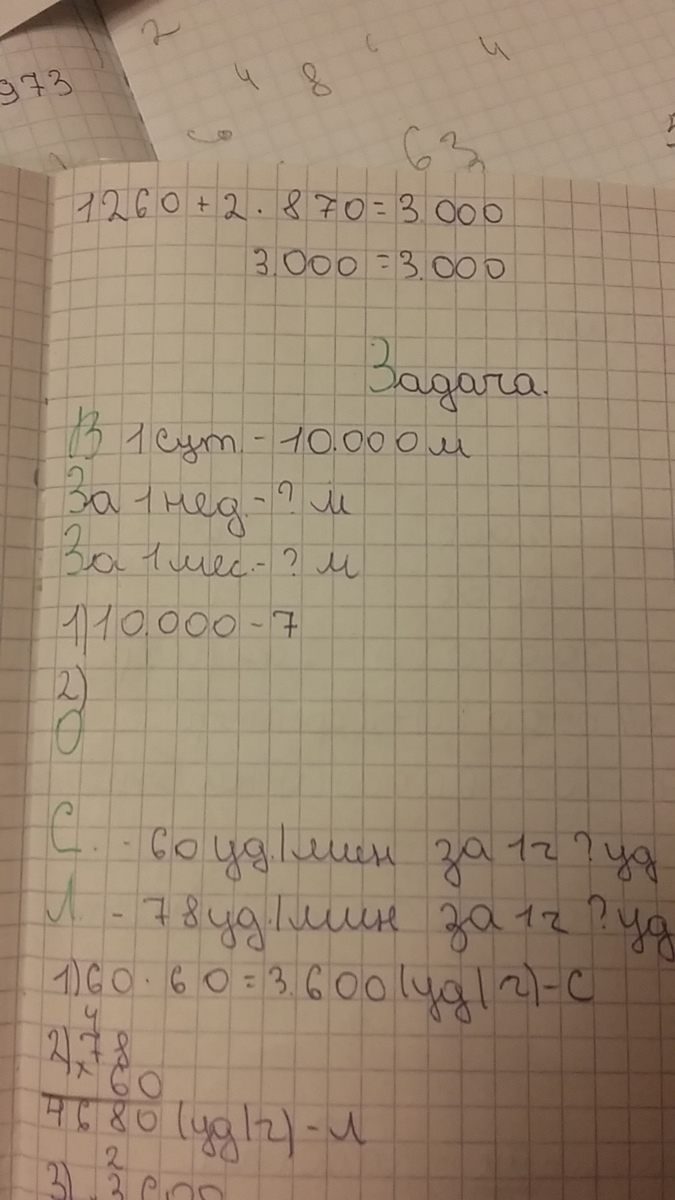 973
2
4 8 4
63
1260 + 2 · 870 = 3.000
3.000 = 3.000
Задача.
В 1 сут. - 10.000 м
За 1 нед. - ? м
За 1 мес. - ? м
1) 10.000 - 7
2)
О
С. - 60 уд./мин за 1 ч ? уд
Л. - 78 уд./мин за 1 ч ? уд
1) 60 · 60 = 3.600 (уд/ч) - С
4
2) 78
× 60
4680 (уд/ч) - Л
2
3)